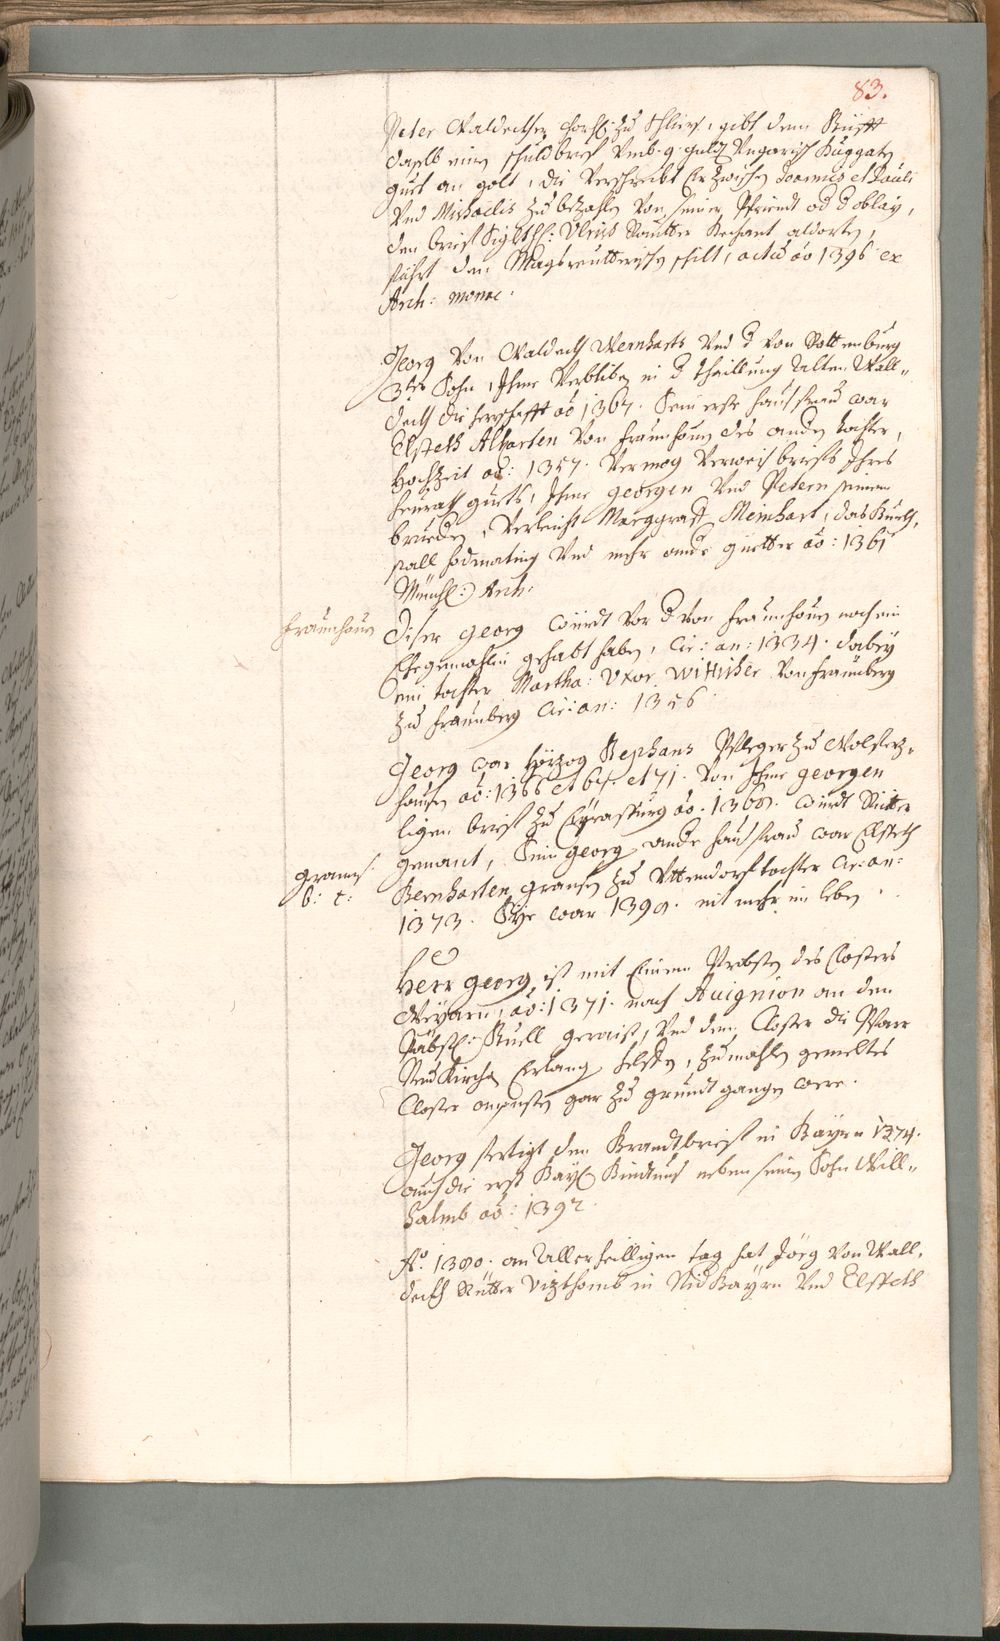 83.
Peter Waldeckher Chorh: zu Schliers, gibt dem Stüfft
daselb einen schuldbrief Vmb. 9. guld Vngarisch Duggaten
guet an golt, die Verschreibt Er zwischen Joannis et Pauli
Vnd Michaelis zu bezahlen Von seiner Pfriendt od d oblay,
den brief Siglt H: Vlrich Dechant aldorten,
führt den Magsreutterischen schilt, actu ao 1396 ex
Arch: monac:
Georg Von Waldeckh Wernharts Vnd d Von Rottenburg
3ter Sohn, Ihme Verbliben in d theillung Alten Wall„
deckh die herrschafft ao 1367. Sein erste hausfrau war
Elspeth Albarten Von fraunhouen des andn tochter,
Hochzeit ao: 1357. Vermög Verweis briefs Ihres
heurath guets, Ihme georgen Vnd Petern seinem
bruedern, Verleicht Marggraff Meinhart, das Burckh„
stall Vnd mehr ande guetter ao: 1361
Münch: Arch:
fraunhouen
Diser Georg würdt Vor d Von fraunhouen noch ein
Ehegemahlin gehabt haben, Cir: an: 1334. dabey
ein tochter Martha: Vxor Von fraunberg
zu fraunberg Cir: an: 1356
Georg war Herzog Stephans Pfleger zu Wolferz„
hausen ao: 1366 et 67. et 71. Von Ihme georgen
ligen brief zu Eyraspurg ao. 1368. würdt Ritter
genant, Sein Georg ande hausfrau war Elspeth
Grannß:
b: t:
Bernharten gransen zu Vttendorf tochter Cir: an:
1373. Sye war 1390. nit mehr im leben
Herr Georg ist mit Einem Probsten des Closters
Weyarn, ao: 1371. nach Auignion an den
Päbstl: Stuell geraist, Vnd dem Closter die Pfarr
Neukirchen Erlangen helffen, zumahlen gemeltes
Closter ansonsten gar zu grundt gangen were.
Georg fertigt den Brandtbrief in Bayrn 1374.
auch die erst Bayr: Bindtnus neben seinen Sohn Will„
halmb ao: 1392.
Ao. 1380. an Allerheilligen tag hat Jörg Von Wall„
deckh Ritter Vizthomb in NidBayrn Vnd Elspeth